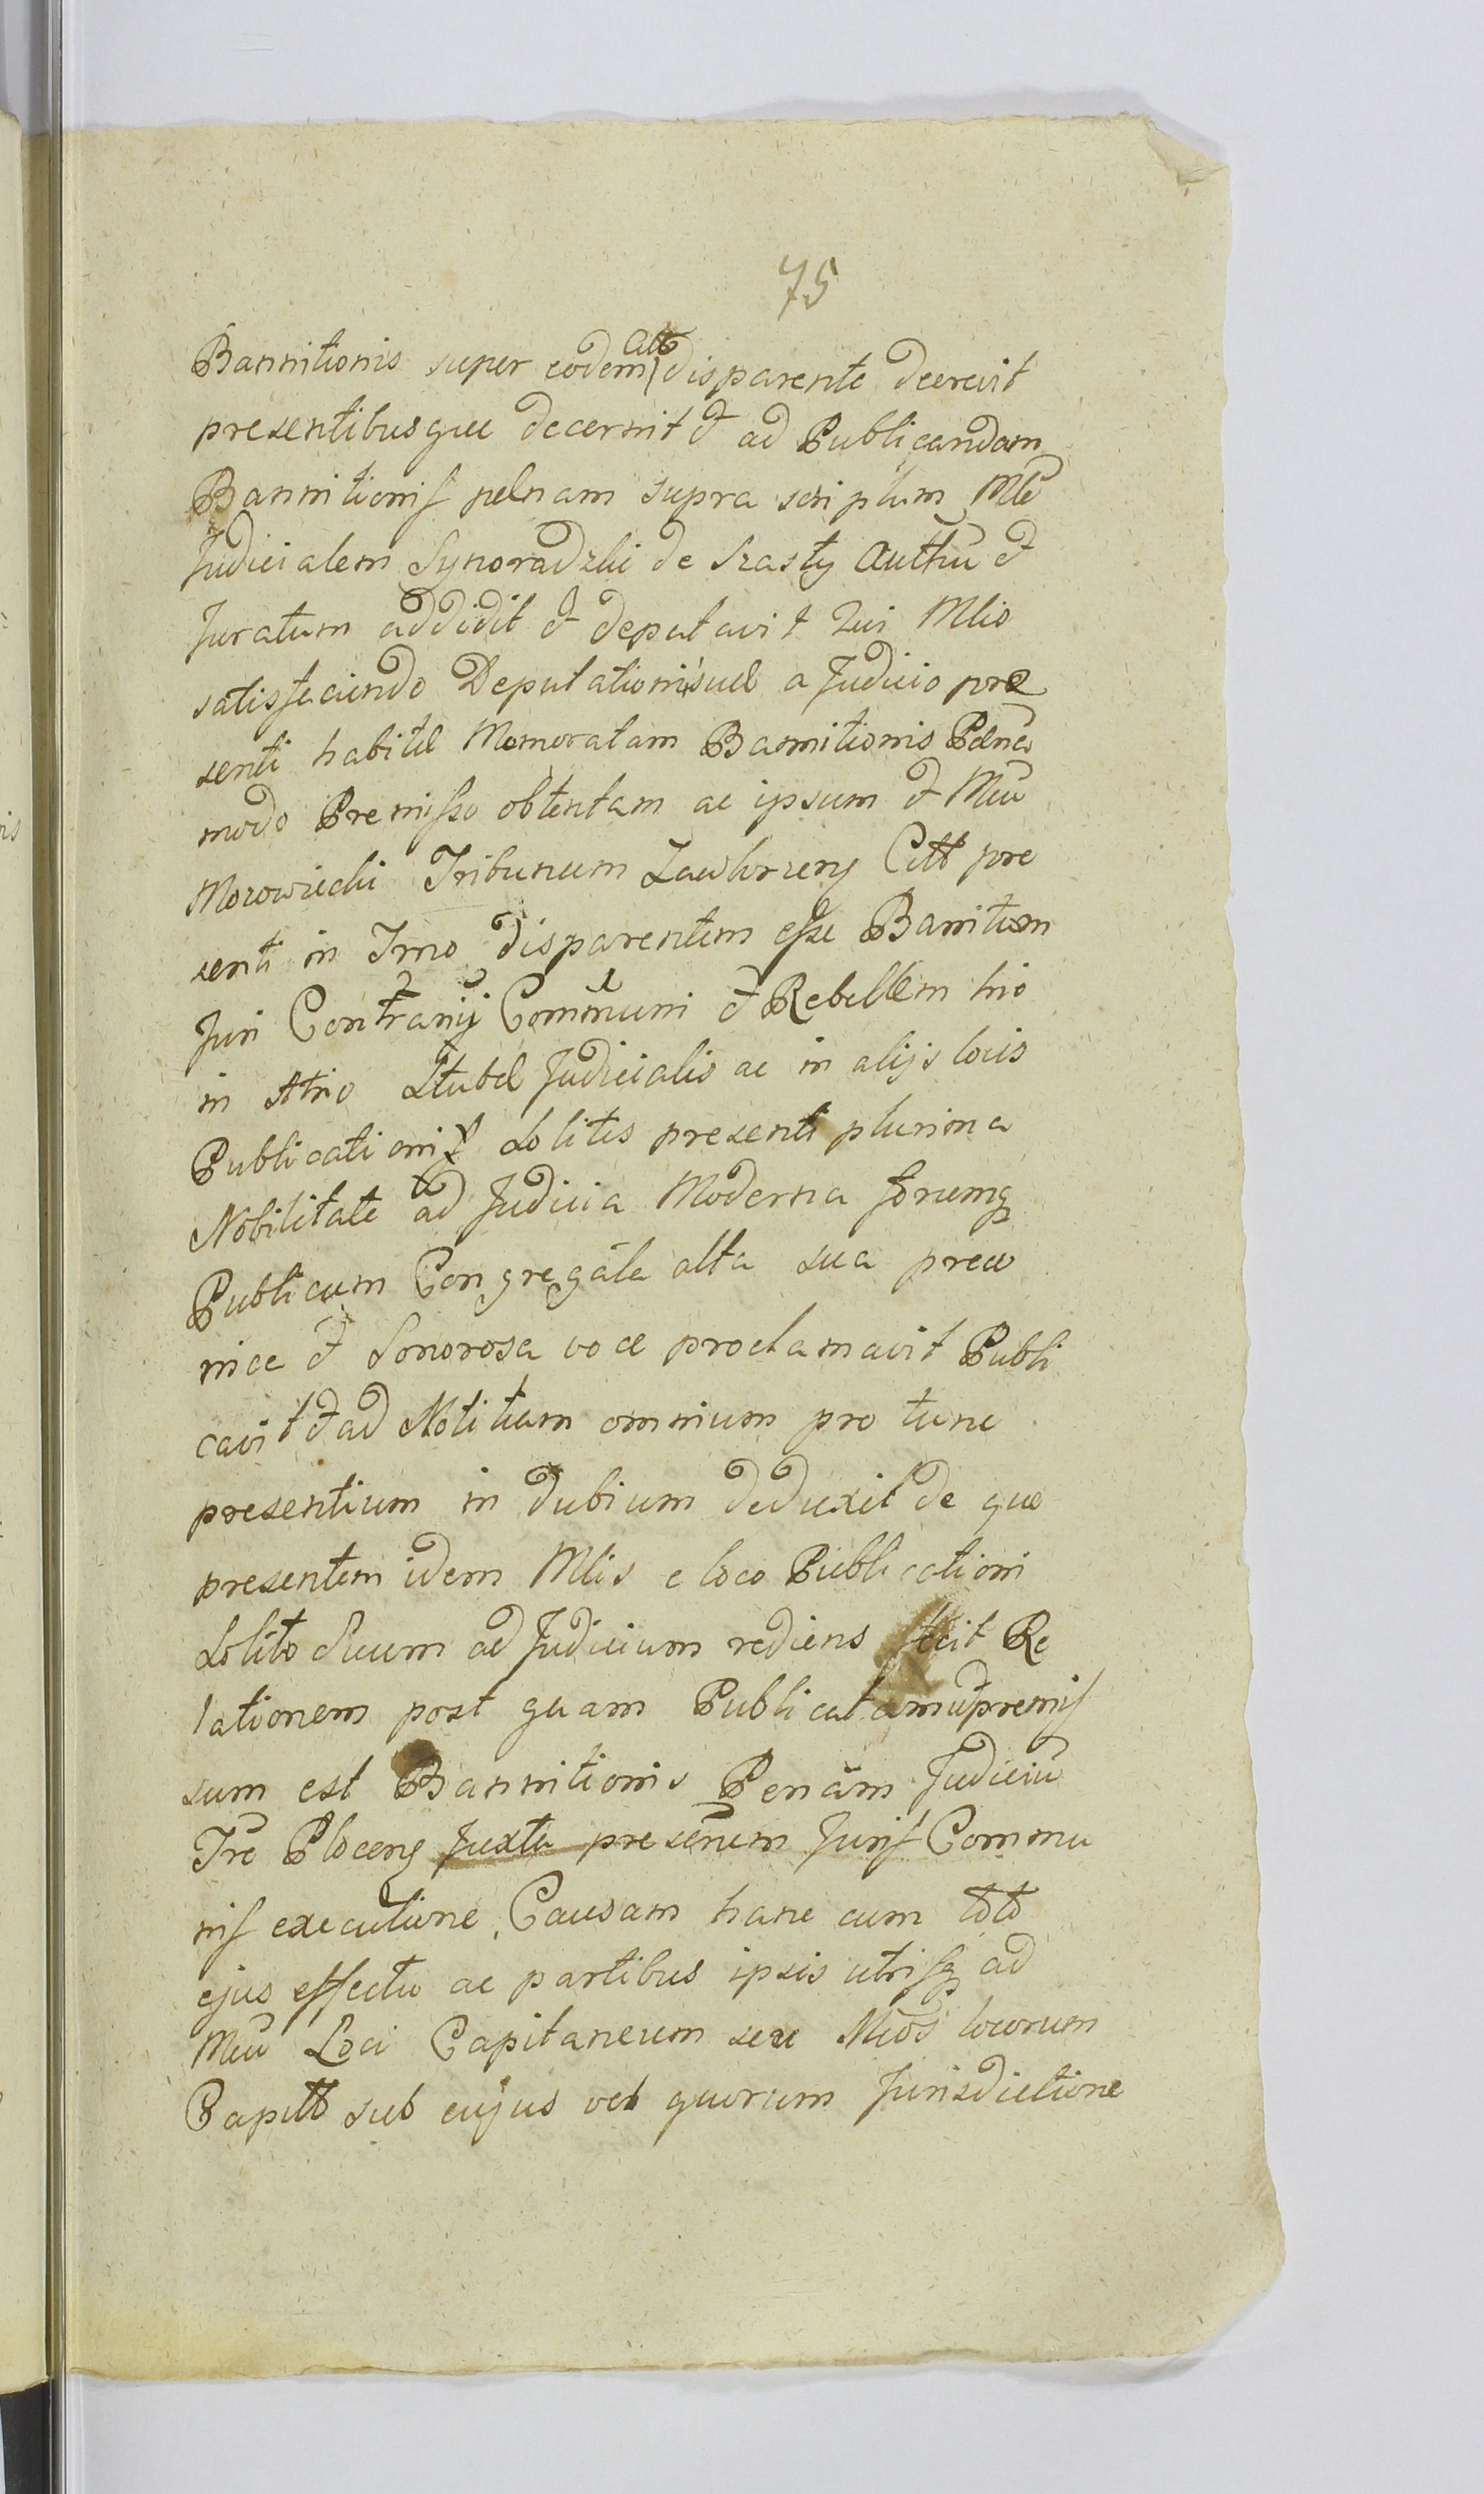 75
Bannitionis super eodem Citto disparente decrevit
presentibusque decernit et ad Publicandam
Bannitionis pelnam supra scriptum Mlē
Judicialem Synoradzki de Szasty Authū et
Juratum addidit et deputavit Qui Mlis
satisfaciendo Deputationi suæ a Judicio præ
senti habitæ Memoratam Bannitionis Pelnā
modo Premisso obtentam ac ipsum et Mcū
Morowicki Tribunum Zawkrzeny Citt pre
senti in Trno disparentem esse Bannitum
Juri Contrariȷ Communi et Rebellem hio
in Atrio Stubæ Judicialis ac in alijs locis
Publicationis Solitis presenti plurima
Nobilitate ad Judicia Moderna forumq
Publicum Congregata alta sua preco
nica et Sonorosa voce proclamavit Publi
cavit et ad Notitiam omnium pro tunc
presentium in dubium deduxit de quo
presentem idem Mlis e loco Publicationi
Solito Suum ad Judicium rediens fecit Re
lationem post quam Publicatam ut premis
sum est Bannitionis Penam Judiciū
Tre Ploceng Juxta presenem Juris Commu
nis executione Causam hanc cum toto
ejus effectu ac partibus ipsis utrisq ad
Mcū Loci Capitaneum seu Mcos locorum
Capitt sub cujus vel quorum Jurisdictione